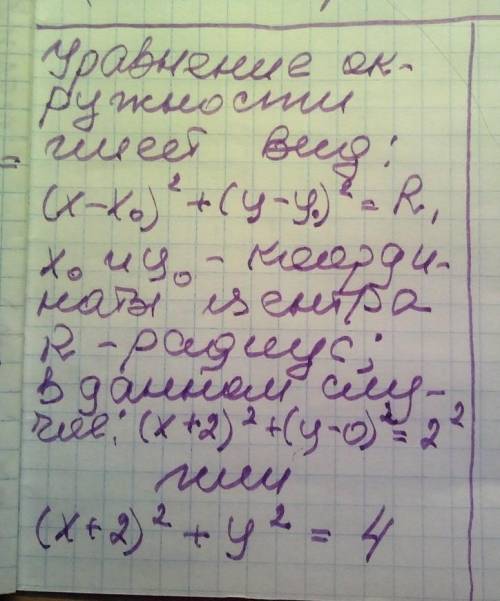 Уравнение ок-
ружности
имеет вид:
(x-x₀)² + (y-y₀)² = R,
x₀ и y₀ - коорди-
наты центра
R - радиус;
В данном слу-
чае: (x+2)² + (y-0)² = 2²
или
(x+2)² + y² = 4